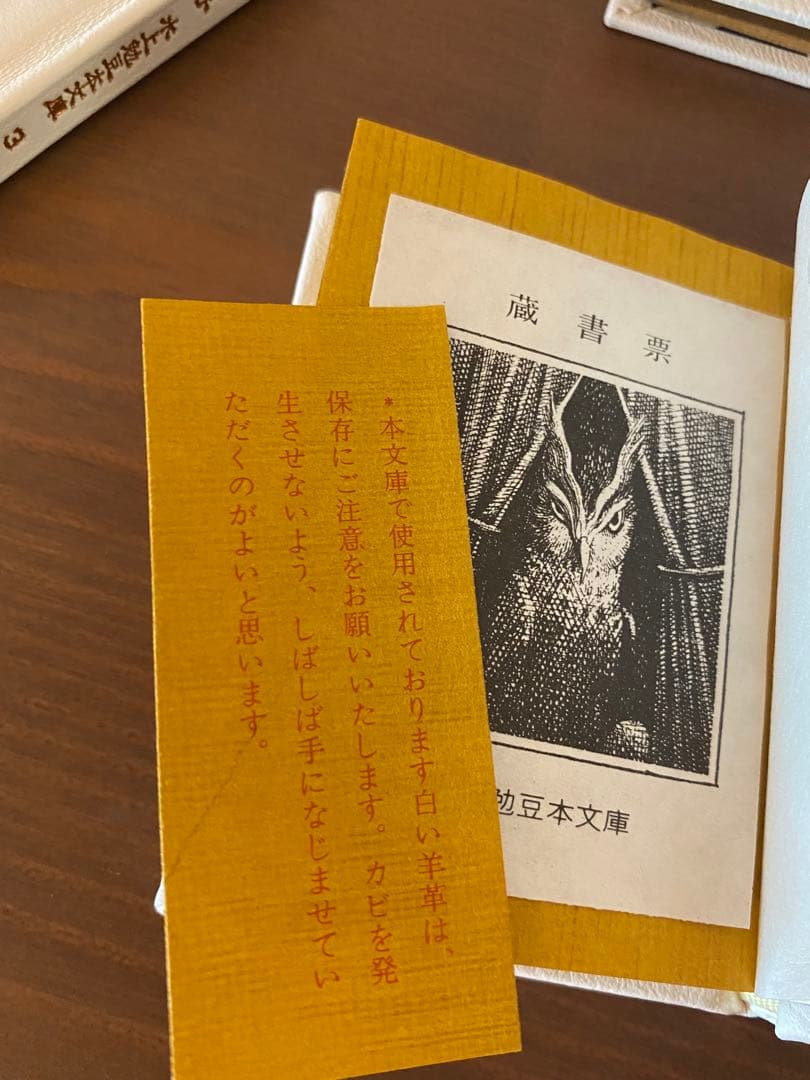 水上勉豆本文庫 3
蔵書票
勉豆本文庫
*本文庫で使用されております白い羊革は、
保存にご注意をお願いいたします。カビを発
生させないよう、しばしば手になじませてい
ただくのがよいと思います。